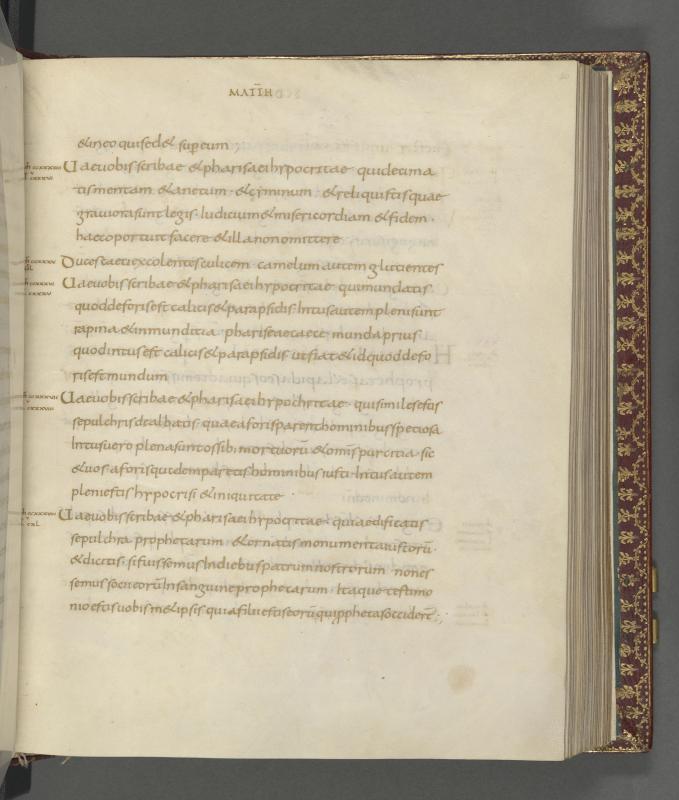 MATTH
& in eo qui sed& super eum
Uae uobis scribae & pharisaei hypocritae qui decima
tis mentam & anetum · & cyminum & reliquistis quae
grauiora sunt legis · Iudicium & misericordiam & fidem ·
haec oportuit facere & illa non omittere
Duces caeci excolentes culicem camelum autem glutientes
Uae uobis scribae & pharisaei hypocritae qui mundatis
quod deforis est calicis & parapsidis Intus autem pleni sunt
rapina & inmunditia pharisaee caece munda prius
quod intus est calicis & parapsidis ut fiat & id quod defo
ris est mundum
Uae uobis scribae & pharisaei hypochritae · qui similes estis
sepulchris dealbatis · quae a foris parent hominibus speciosa
Intus uero plena sunt ossib; mortuorū & omni spurcitia · sic
& uos · a foris quidem paretis hominibus iusti · Intus autem
pleni estis hypocrisi & iniquitate
Uae uobis scribae & pharisaei hypocritae quia edificatis
sepulchra prophetarum & ornatis monumenta iustorū
& dicitis · si fuissemus In diebus patrum nostrorum non es
semus socii eorū In sanguine prophetarum Itaque testimo
nio estis uobism&ipsis quia filii estis eorū qui pphetas occidert̄